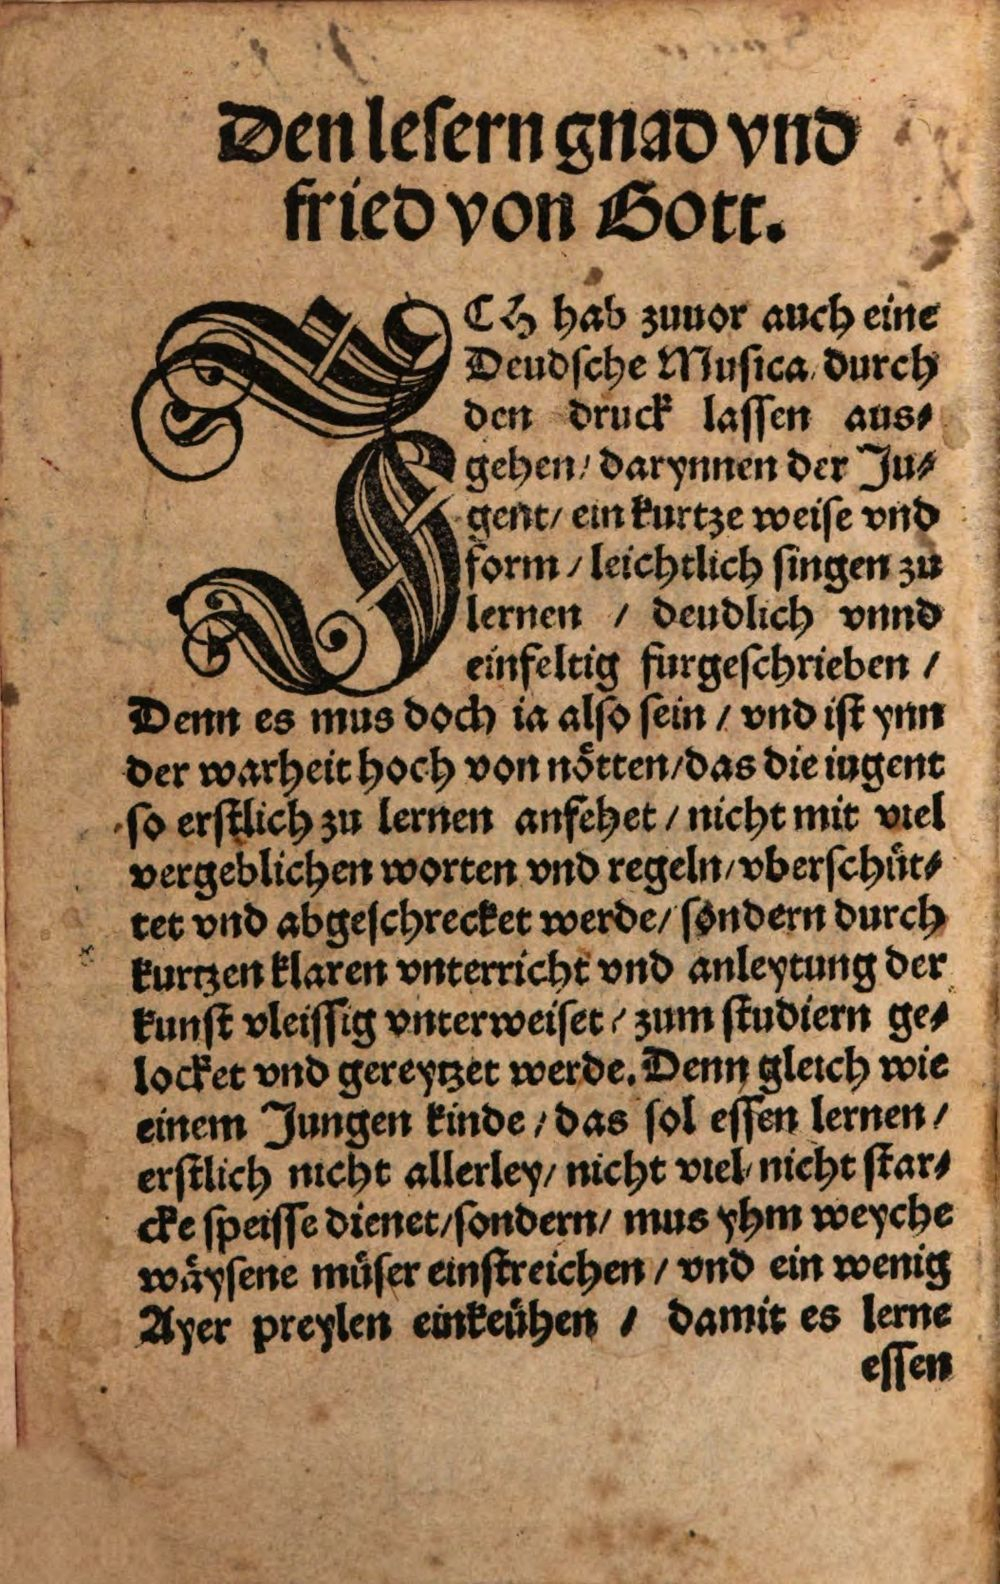 Den lesern gnad vnd
fried von Gott.
ICH hab zuuor auch eine
Deudsche Musica durch
den druck lassen aus-
gehen / darynnen der Ju-
gent / ein kurtze weise vnd
form / leichtlich singen zu
lernen / deudlich vnnd
einfeltig furgeschrieben /
Denn es mus doch ia also sein / vnd ist ynn
der warheit hoch von nötten / das die iugent
so erstlich zu lernen anfehet / nicht mit viel
vergeblichen worten vnd regeln / vberschüt-
tet vnd abgeschrecket werde / sondern durch
kurtzen klaren vnterricht vnd anleytung der
kunst vleissig vnterweiset / zum studiern ge-
locket vnd gereytzet werde. Denn gleich wie
einem Jungen kinde / das sol essen lernen /
erstlich nicht allerley / nicht viel / nicht star-
cke speisse dienet / sondern / mus yhm weyche
wäysene müser einstreichen / vnd ein wenig
Ayer preylen einkeühen / damit es lerne
essen